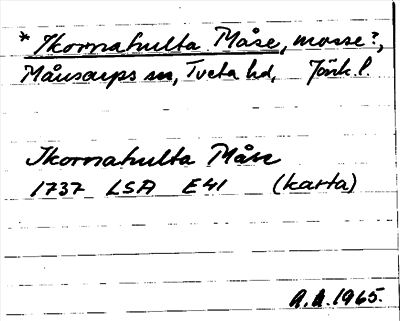 * Skorrahulta Måse, mosse?,
Månsarps sn, Tveta hd, Jönk. l.
Skorrahulta Måse
1737 LSA E41 (karta)
A.A. 1965.